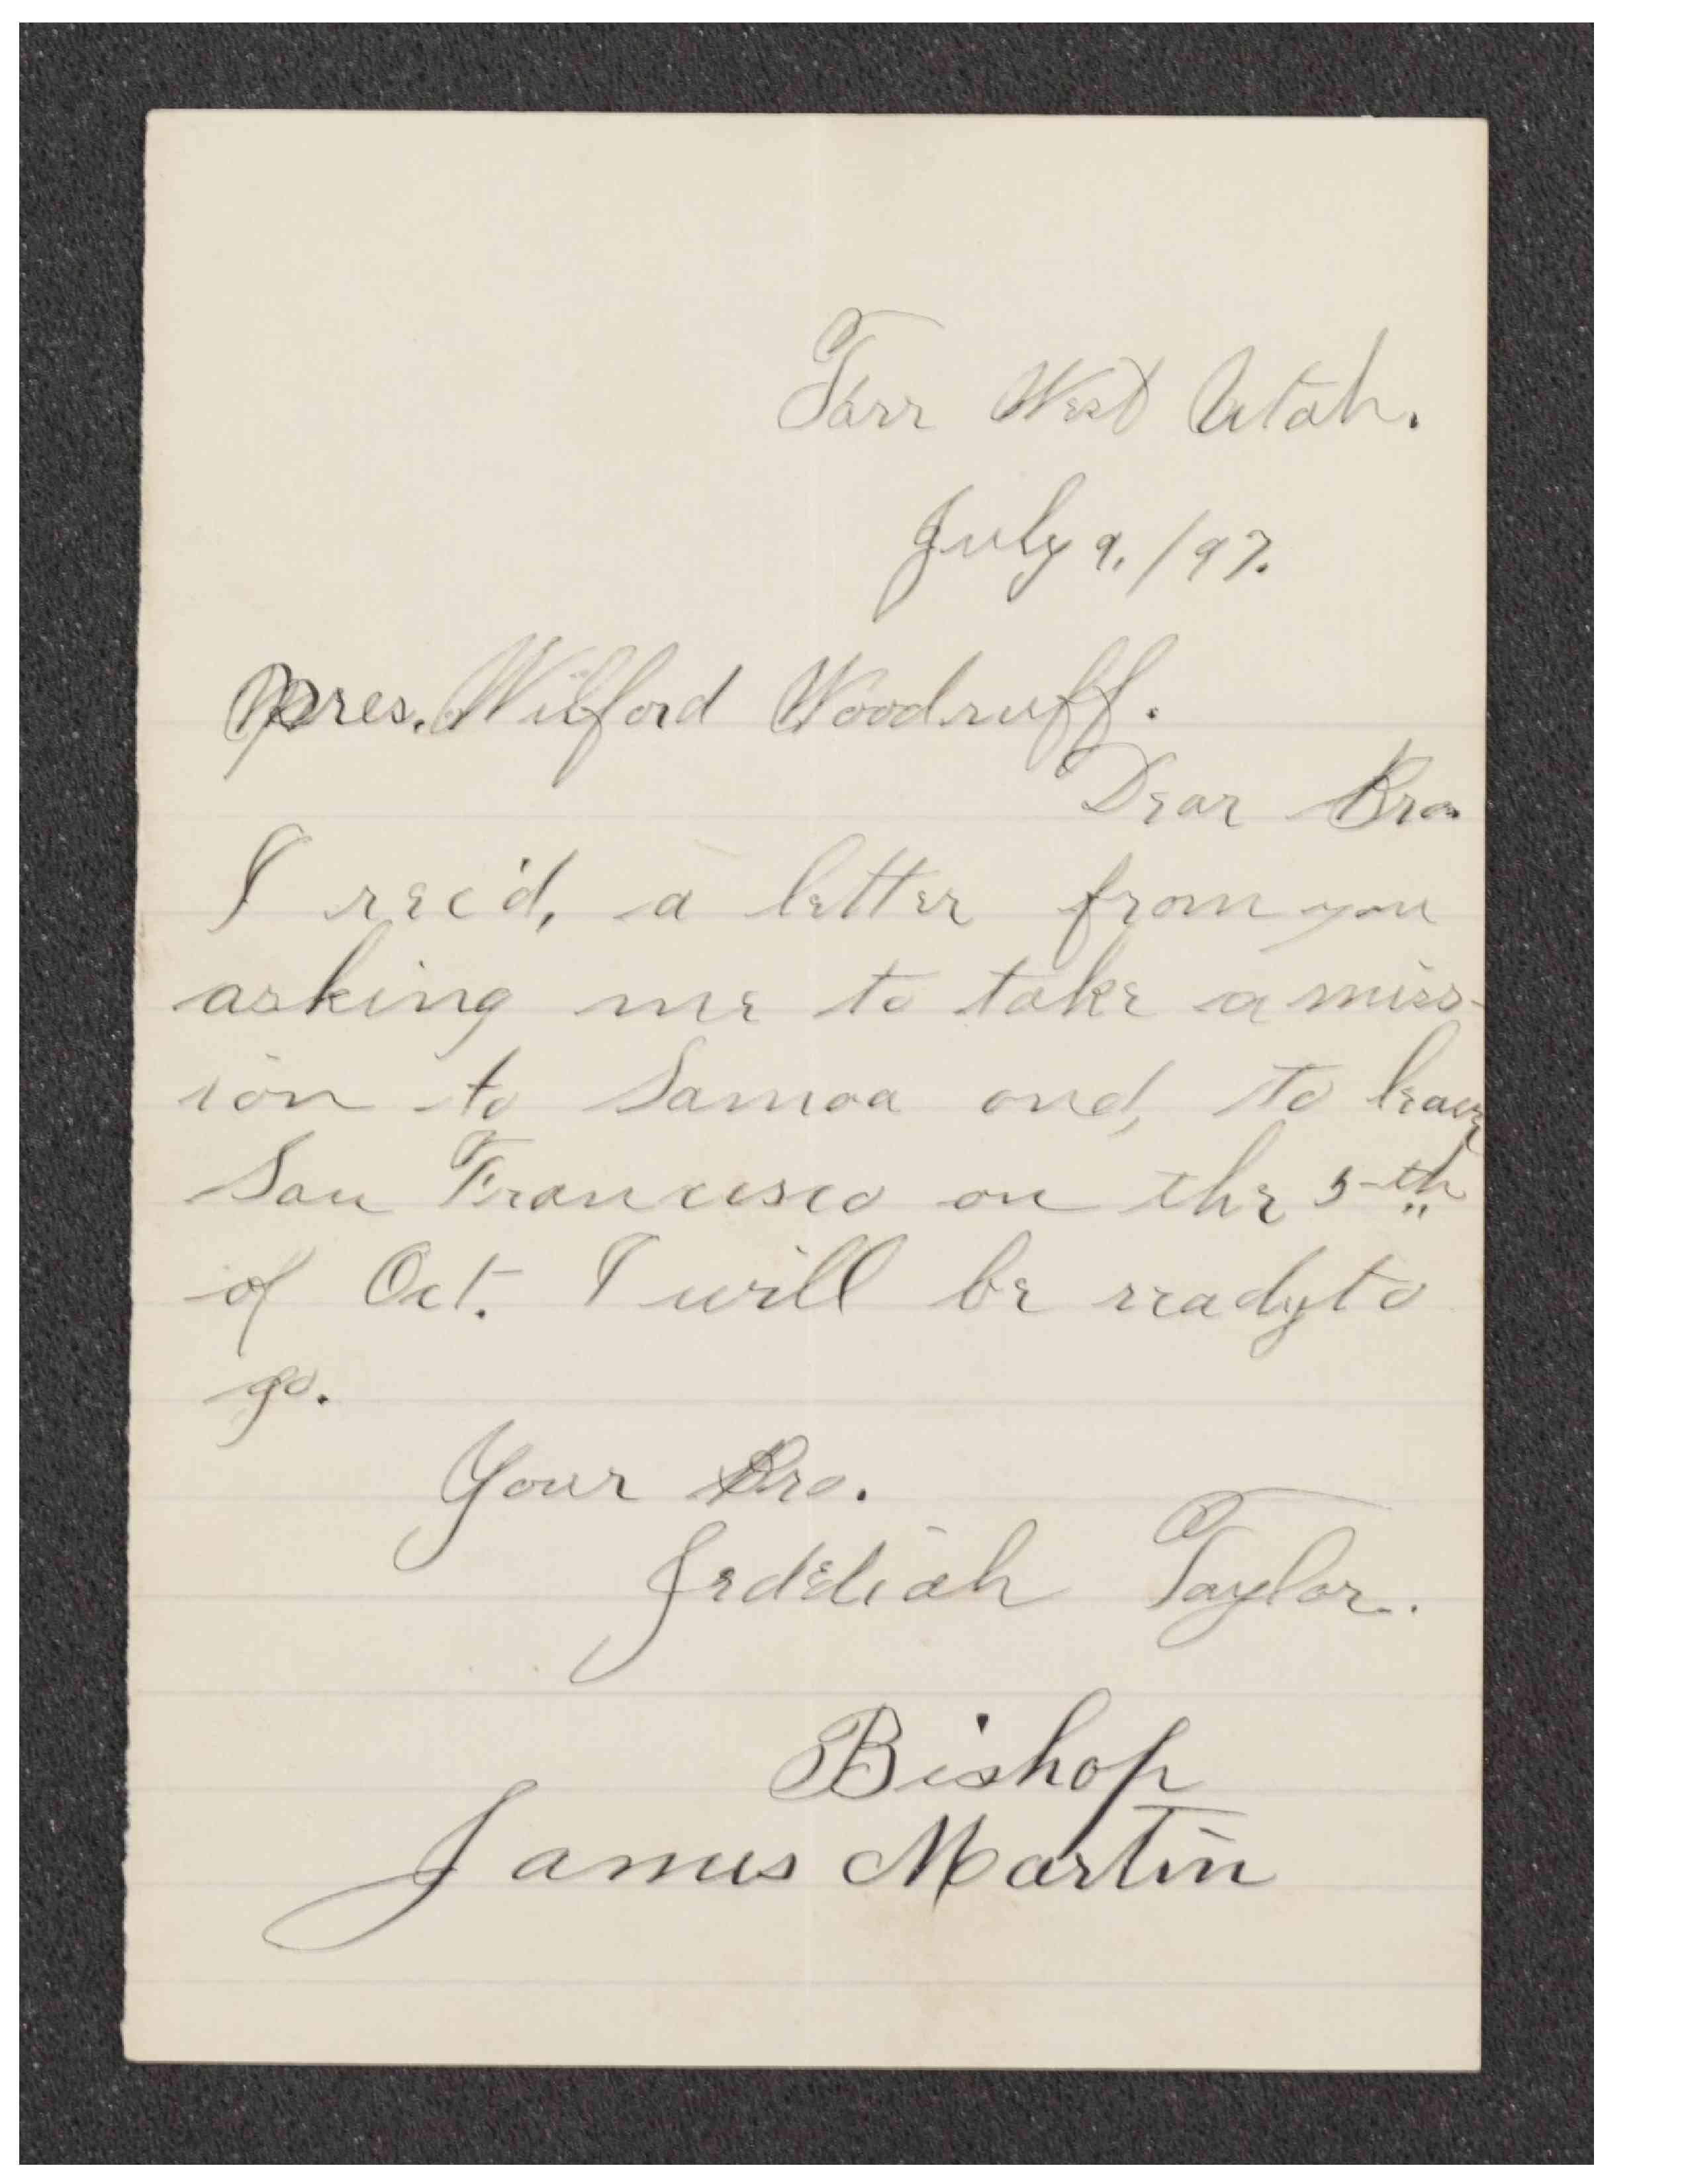 Farr West Utah.
July 9, /97.
Pres. Wilford Woodruff.
Dear Bro.
I rec'd, a letter from you
asking me to take a miss-
ion to Samoa and, to leave
San Francisco on the 5th
of Oct. I will be ready to
go.
Your Bro.
Jeddiah Taylor.
Bishop
James Martin